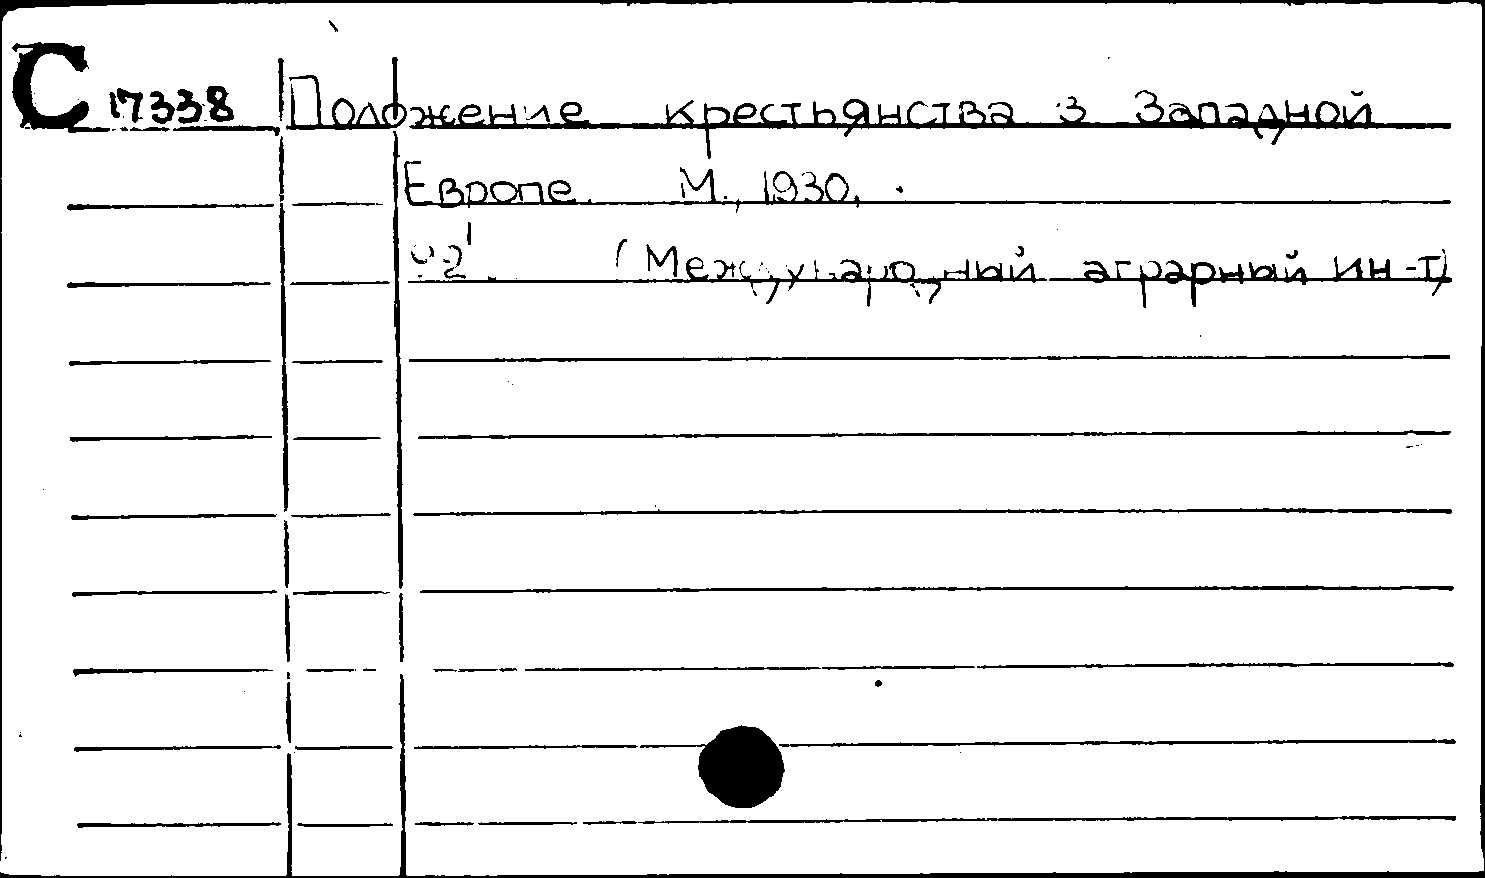 С 17338 Положение крестьянства в Западной
Европе. М., 1930.
(Международный аграрный ин-т)